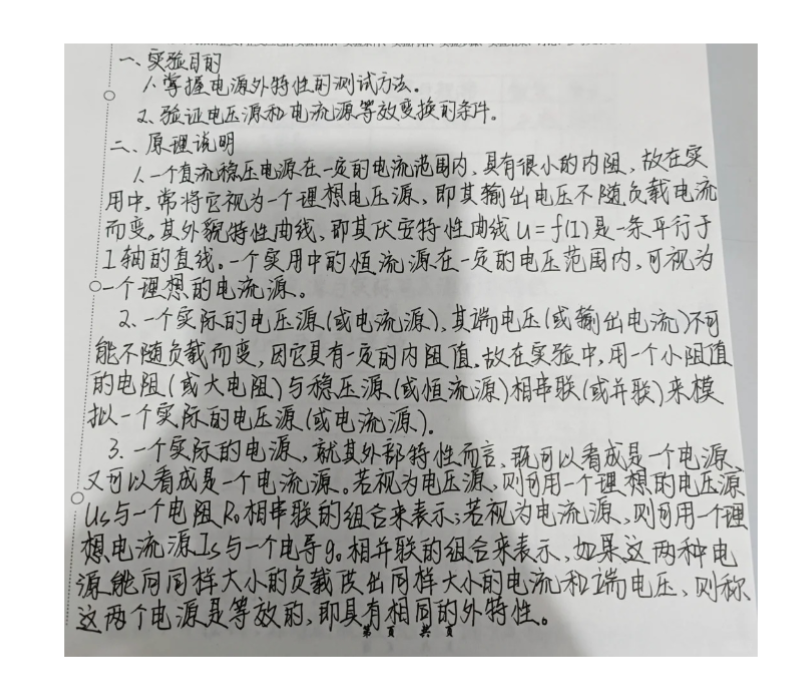 一、实验目的
1、掌握电源外特性的测试方法。
2、验证电压源和电流源等效变换的条件。
二、原理说明
1、一个直流稳压电源在一定的电流范围内,具有很小的内阻,故在实
用中,常将它视为一个理想电压源,即其输出电压不随负载电流
而变。其外貌特性曲线,即其伏安特性曲线U=f(I)是一条平行于
I轴的直线。一个实用中的恒流源在一定的电压范围内,可视为
一个理想的电流源。
2、一个实际的电压源(或电流源),其端电压(或输出电流)不可
能不随负载而变,因它具有一定的内阻值。故在实验中,用一个小阻值
的电阻(或大电阻)与稳压源(或恒流源)相串联(或并联)来模
拟一个实际的电压源(或电流源).
3.一个实际的电源,就其外部特性而言,既可以看成是一个电源、
又可以看成是一个电流源。若视为电压源,则可用一个理想的电压源
Us与一个电阻R₀相串联的组合来表示;若视为电流源,则可用一个理
想电流源Is与一个电导g₀相并联的组合来表示,如果这两种电
源能向同样大小的负载供出同样大小的电流和端电压,则称
这两个电源是等效的,即具有相同的外特性。
第 页 共 页